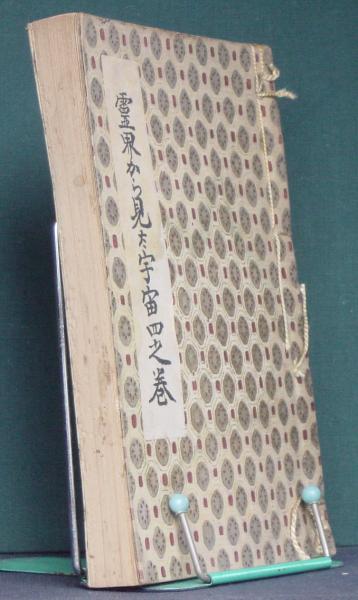 霊界から見た宇宙四之巻